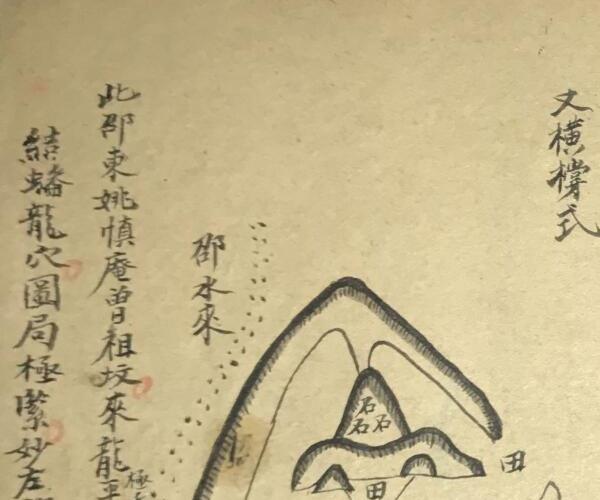 又橫撐式
邵水來
石
石石
田
田
此邵東姚慎庵曾祖坟來龍
結蟠龍穴圖局極緊妙左